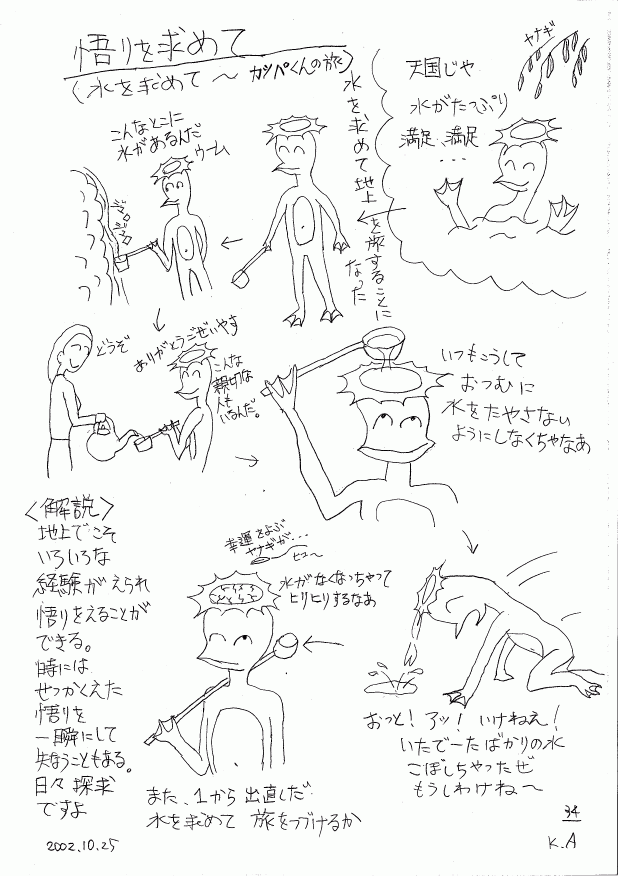 悟りを求めて
(水を求めて～ カッパくんの旅)
ヤナギ
天国じゃ
水がたっぷり
満足、満足
...
水を求めて地上を旅することになった
こんなとこに
水があるんだ
ウーム
どうぞ
ありがとうごぜいやす
こんな
親切な
人も
いるんだ。
いつもこうして
おつむに
水をたやさない
ようにしなくちゃなあ
おっと！アッ！いけねえ！
いたでーたばかりの水
こぼしちやったぜ
もうしわけね～
幸運をよぶ
ヤナギが...
ヒュ～
水がなくなっちゃって
ヒリヒリするなあ
また、1から出直しだ
水を求めて 旅をつづけるか
<解説>
地上でこそ
いろいろな
経験がえられ
悟りをえることが
できる。
時には
せっかくえた
悟りを
一瞬にして
失なうこともある。
日々探求
ですよ
2002.10.25
34
K.A